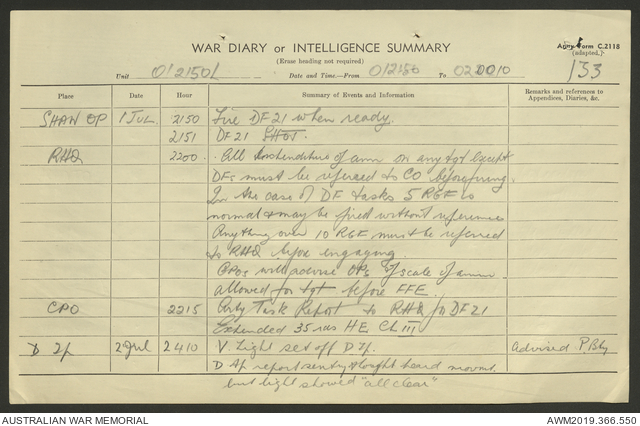 WAR DIARY or INTELLIGENCE SUMMARY
Army Form C.2118
(Erase heading not required)
(adapted.)
Unit 012150L Date and Time—From 012150 To 020010 153
Place Date Hour Summary of Events and Information Remarks and references to
Appendices, Diaries, &c.
SHAW OP 1 JUL. 2150 Fire DF 21 when ready.
2151 DF 21 SHOT.
RHQ 2200 . All of amn on any tgt except
DFs must be refereed to CO before firing.
In the case of DF tasks 5 RGF is
normal & may be fired without reference
Anything over 10 RGF must be referred
to RHQ before engaging.
CPOs will advise OPs of scale of amn
allowed for tgt before FFE.
CPO 2215 Arty Task Report to RHQ for DF 21
Expended 35 rds HE CH III
D 2 Jul 2410 V. Light set off D Tp. Advised P. Bty
D Tp report sentry thought heard movmt.
but light showed "all clear"
AUSTRALIAN WAR MEMORIAL AWM2019.366.550